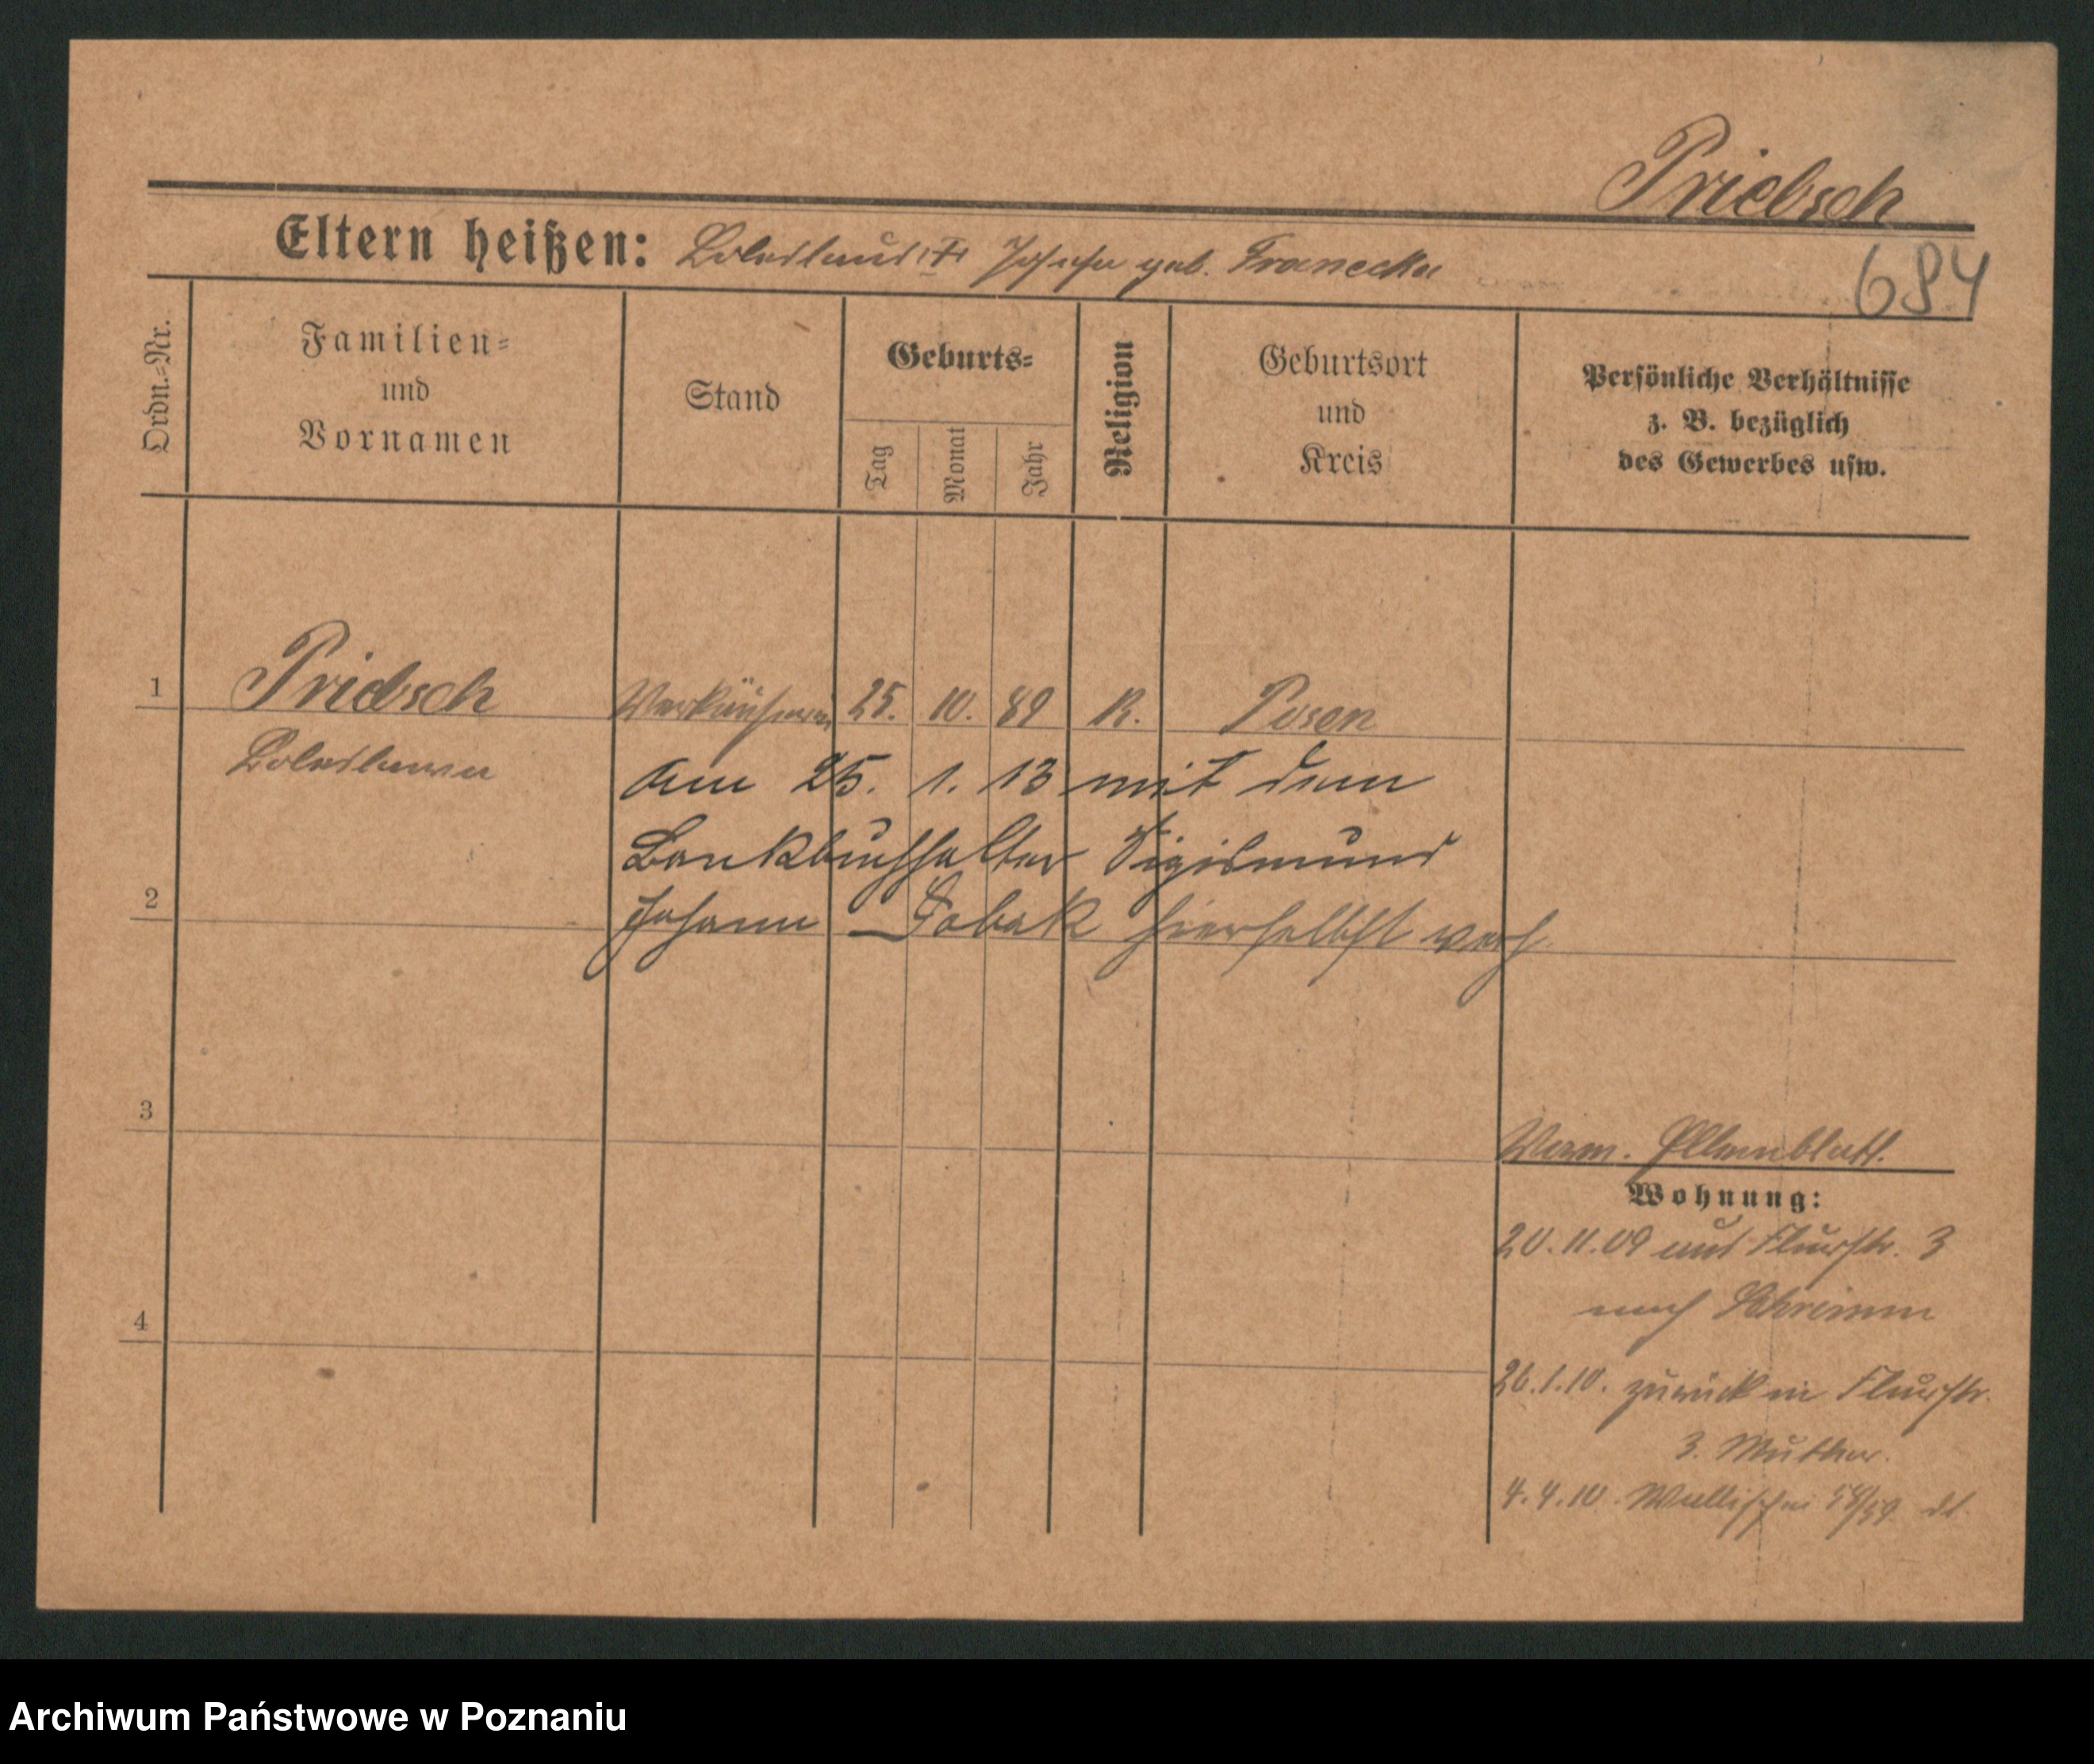 Priebsch
Eltern heißen: Boleslaus † Josefa geb. Franecka
684
Ordn.-Nr.
Familien-
und
Vornamen
Stand
Geburts-
Tag
Monat
Jahr
Religion
Geburtsort
und
Kreis
Persönliche Verhältnisse
z. B. bezüglich
des Gewerbes usw.
1 Priebsch Verkäuferin 25. 10. 89 K. Posen
Boleslawa
am 25. 1. 13 mit dem
Bankbuchhalter Sigismund
2 Johann Dobak hierselbst verh.
3
Verm. Elternblatt.
Wohnung:
20.11.09 aus Flurstr. 3
nach Schrimm
4
26.1.10. zurück in Flurstr.
3. Mutter.
4.4.10. Wallischei 58/59
Archiwum Państwowe w Poznaniu